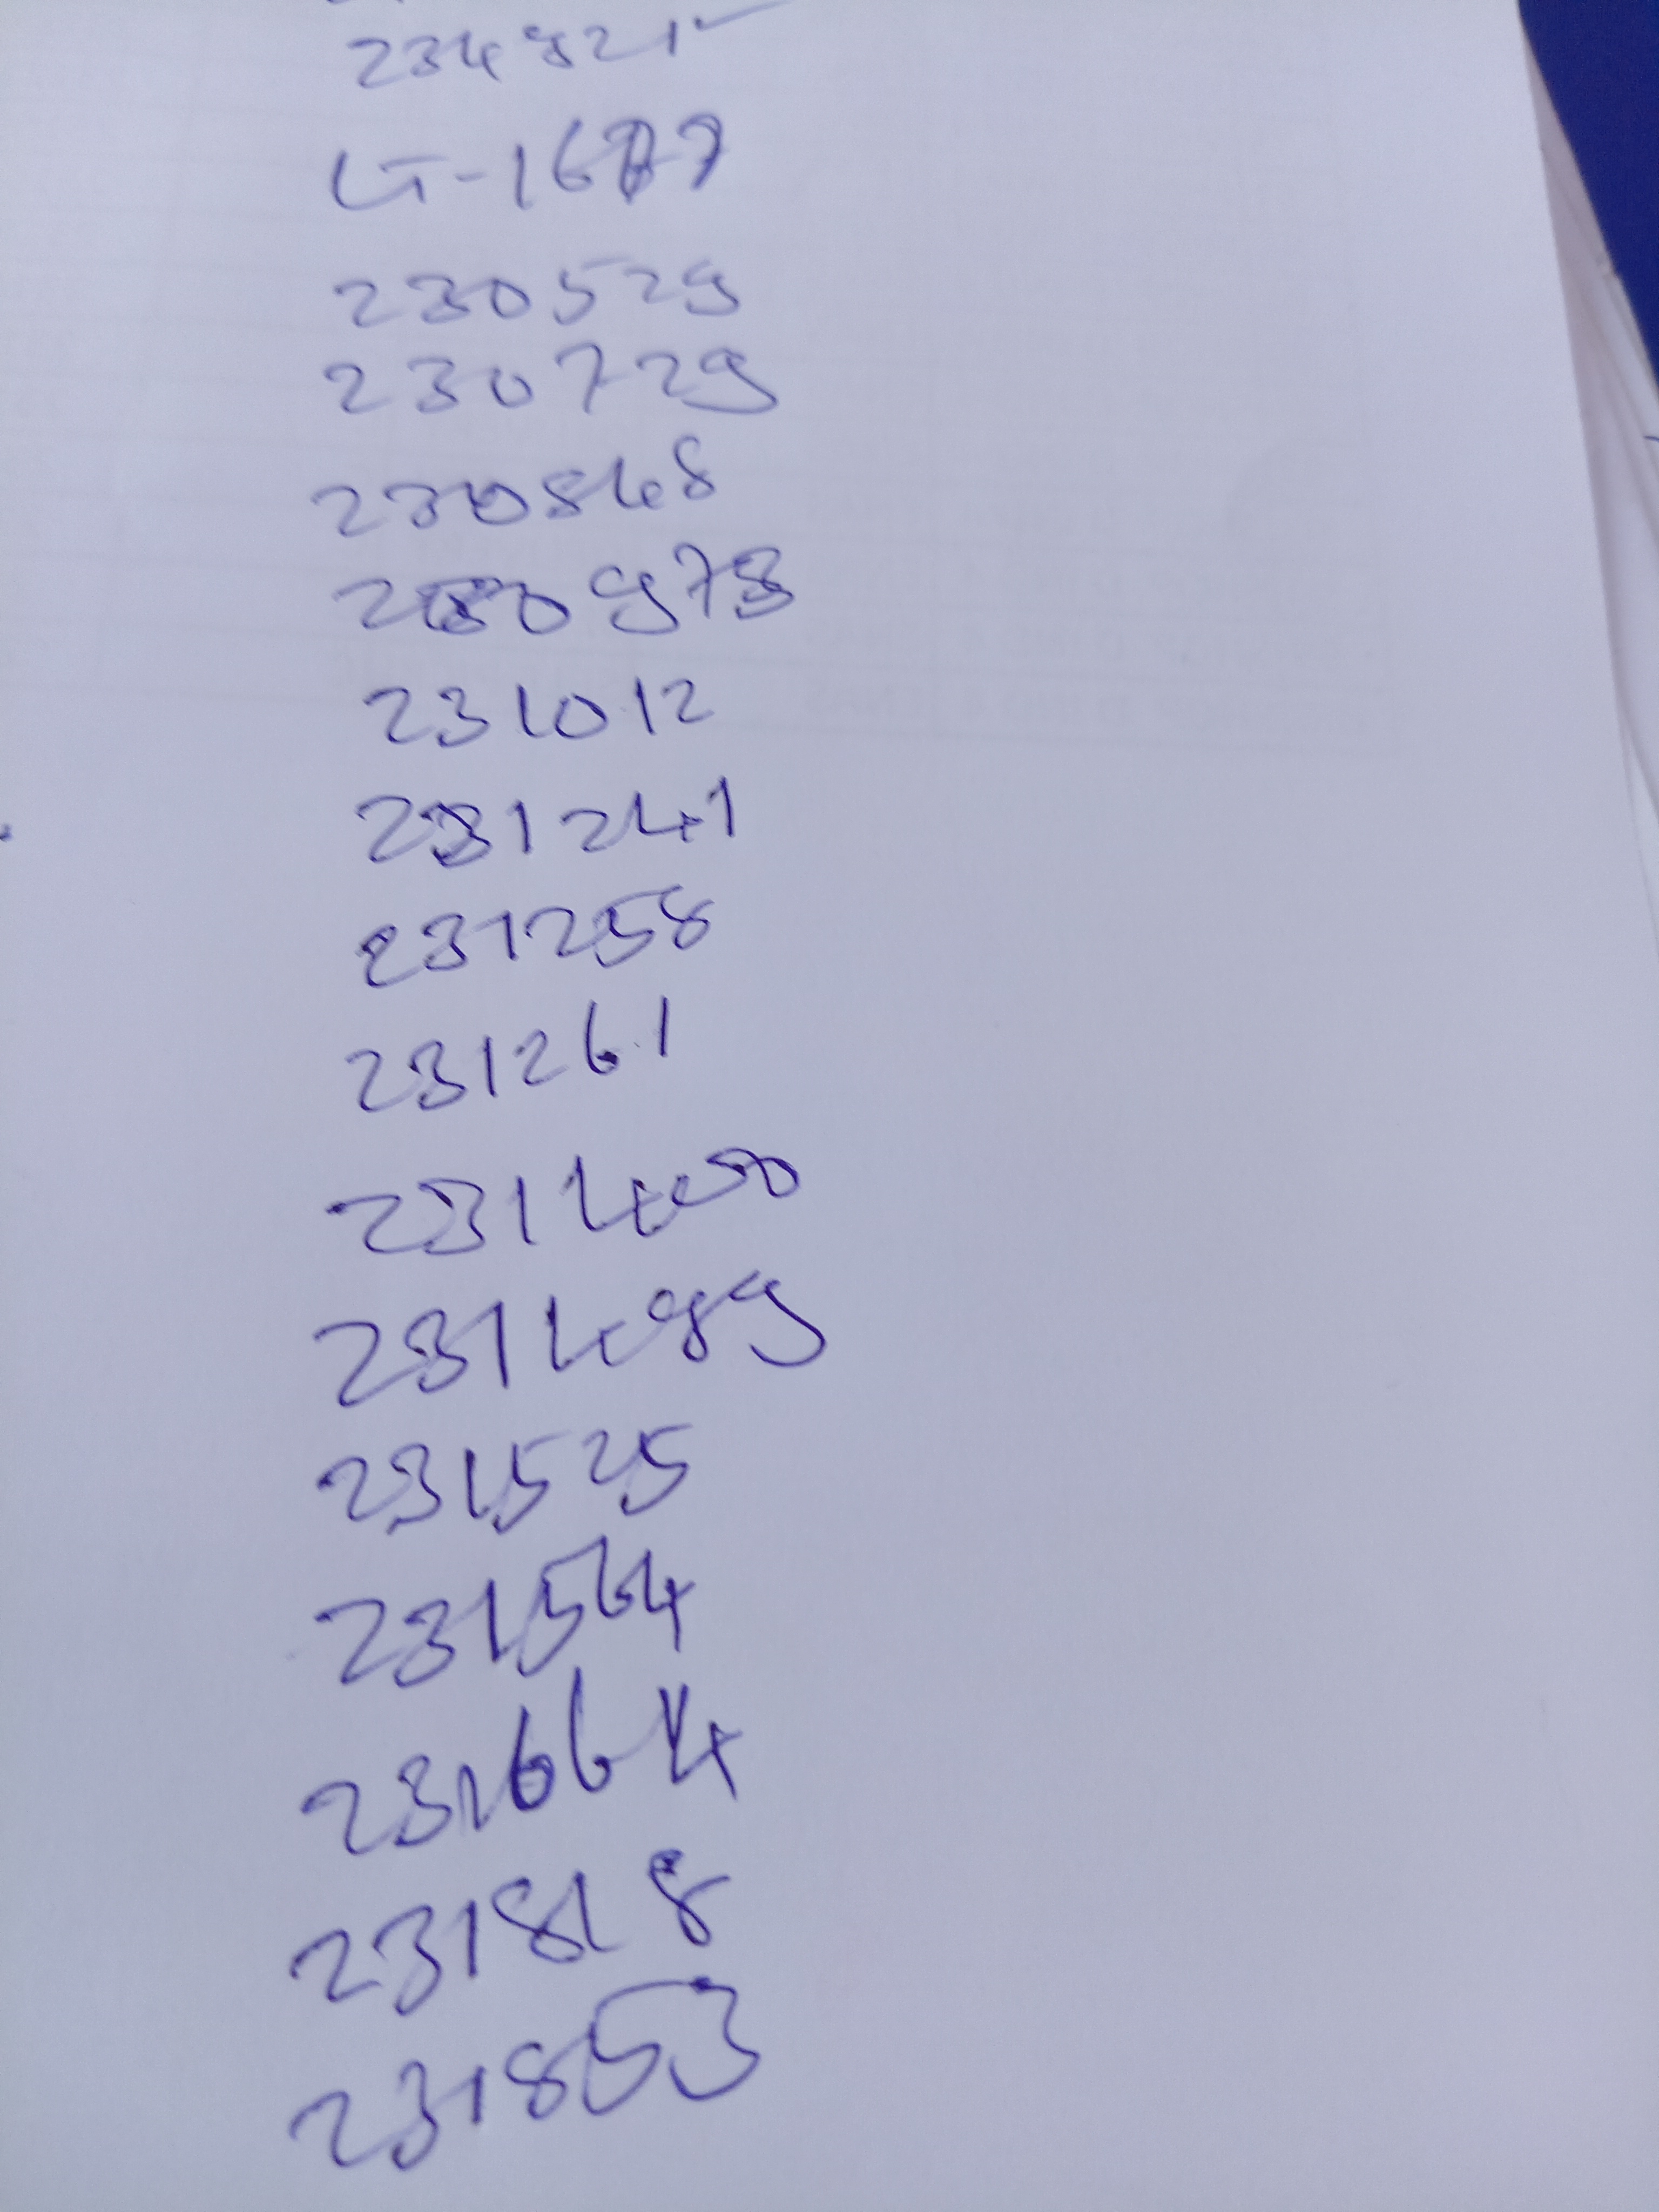 234821
LT-1677
230529
230729
230848
230973
231012
231241
231258
231261
231400
231499
231525
231564
231664
231818
231853